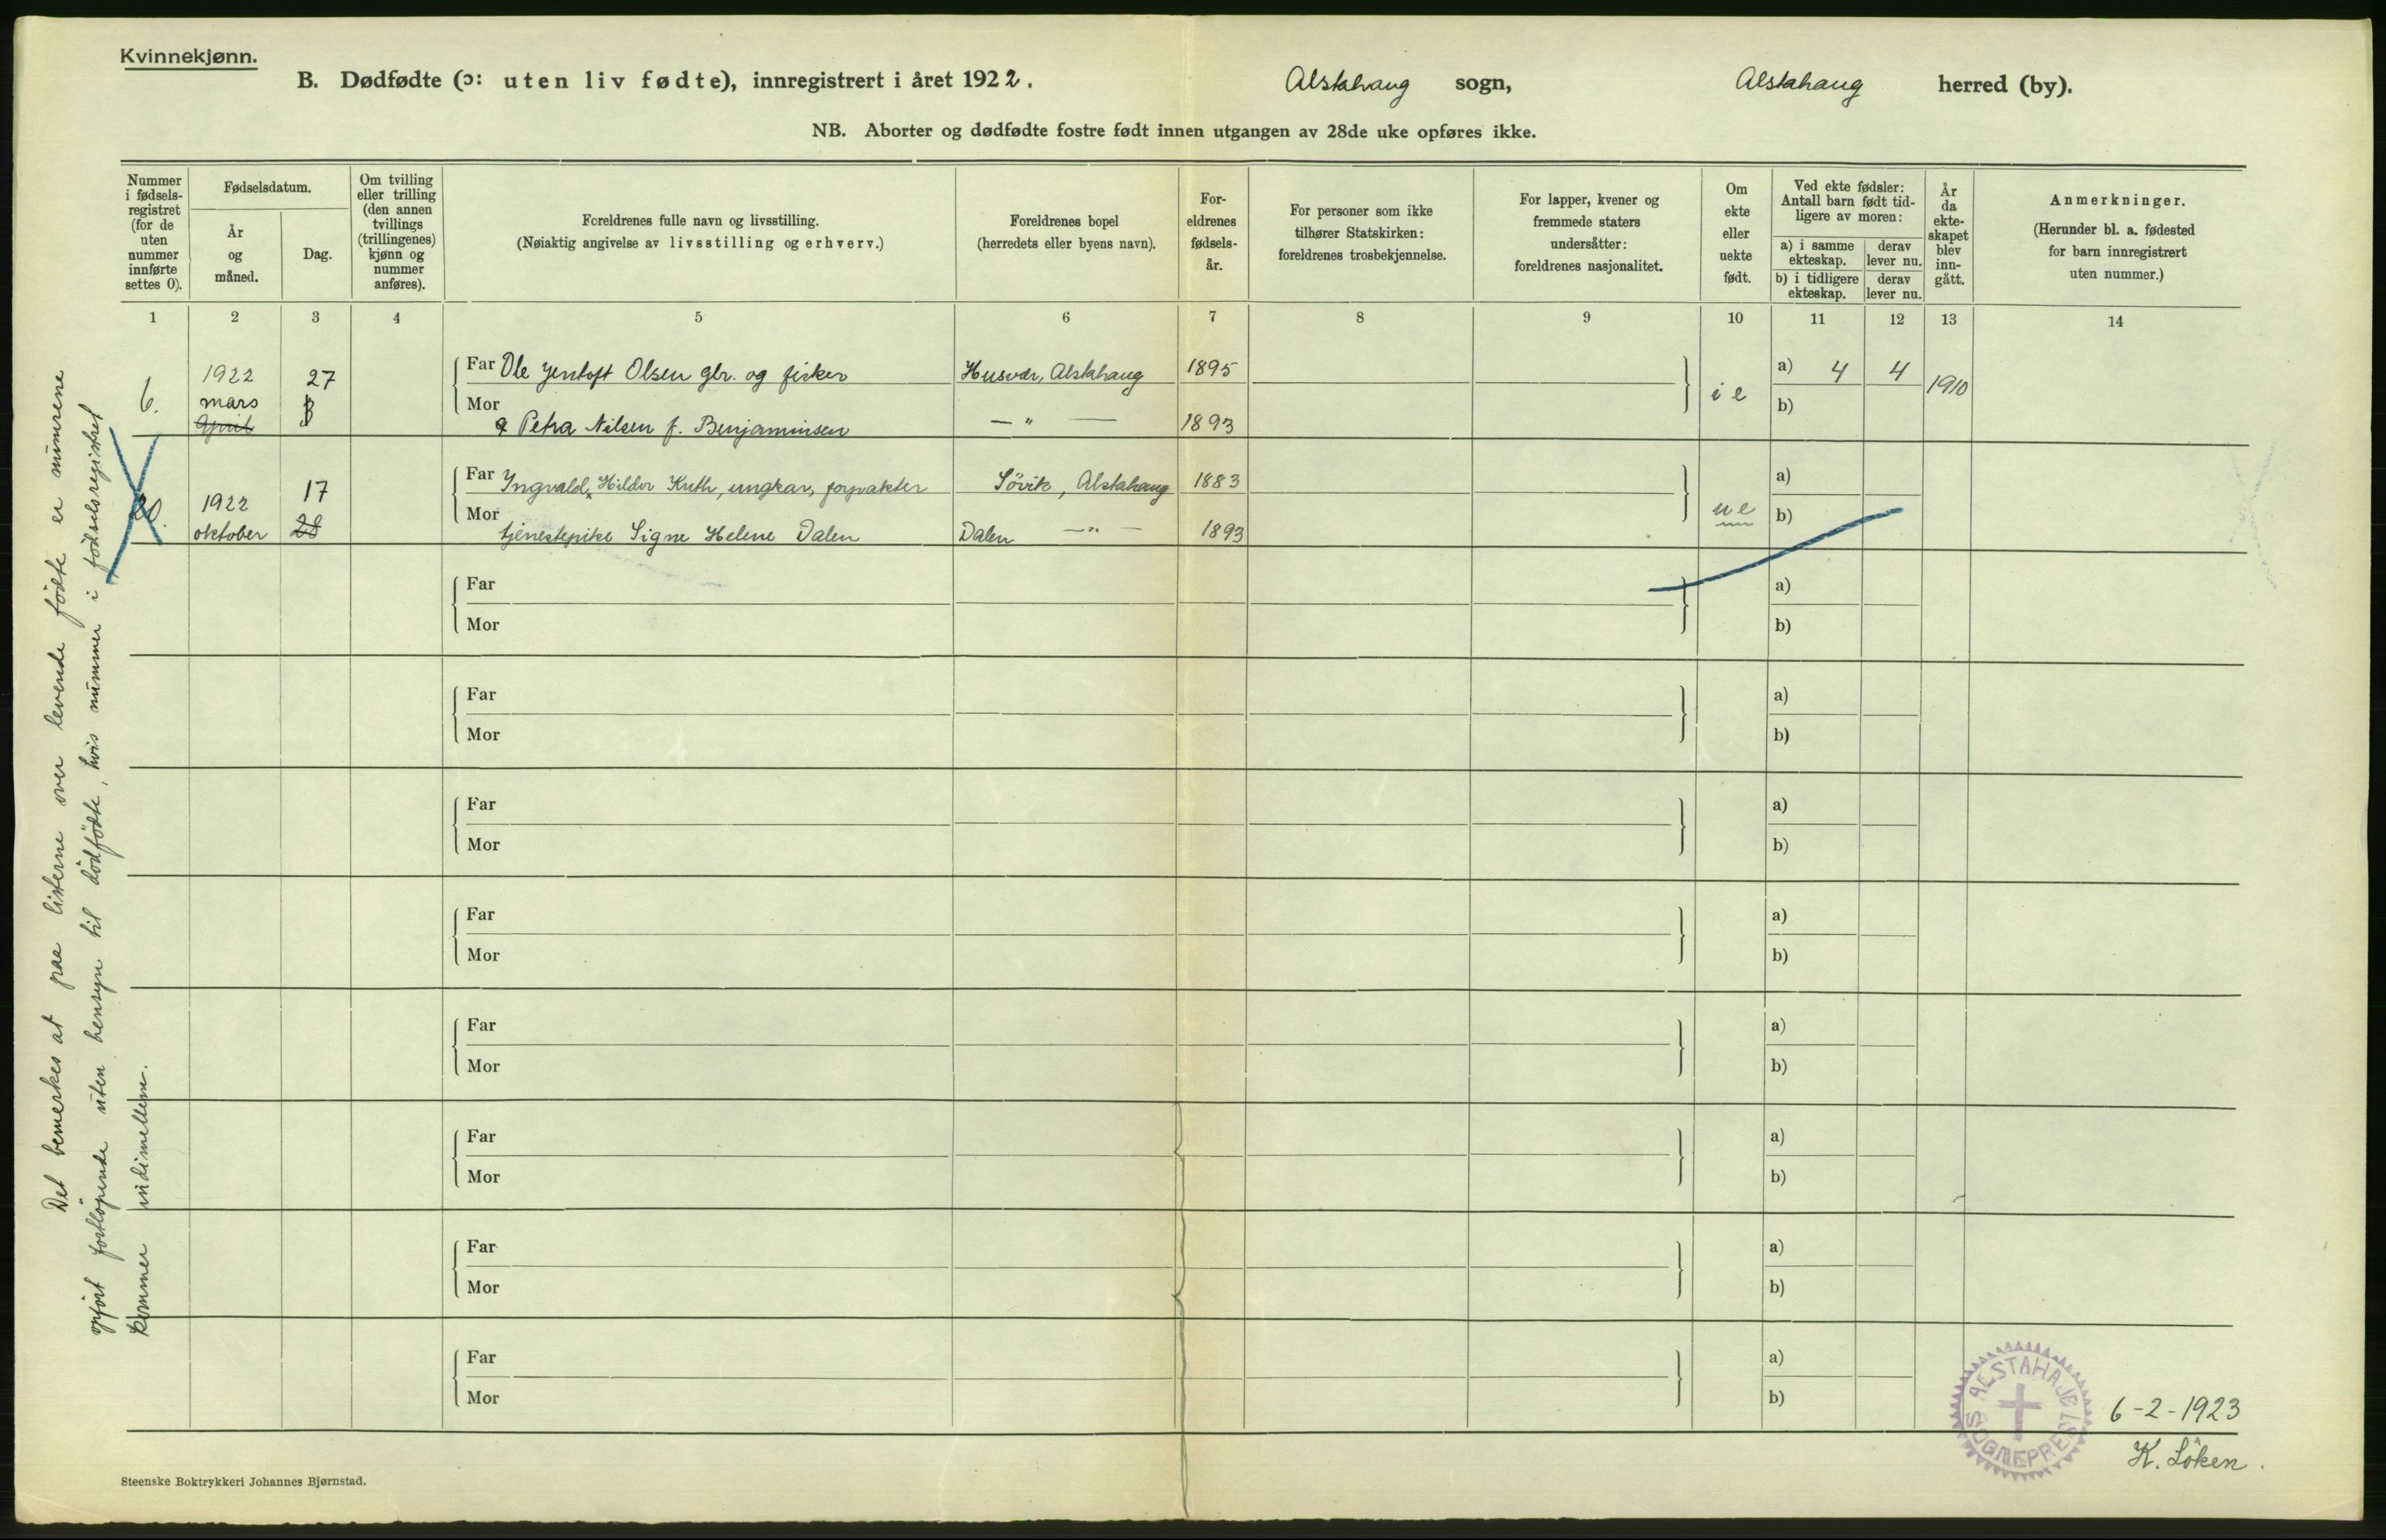 Kvinnekjønn.
B. Dødfødte (ɔ: uten liv fødte), innregistrert i året 1922. Alstahaug sogn, Alstahaug herred (by).
NB. Aborter og dødfødte fostre født innen utgangen av 28de uke opføres ikke.
Nummer i fødsels-registret (for de uten nummer innførte settes 0).
Fødselsdatum.
År og måned.
Dag.
Om tvilling eller trilling (den annen tvillings (trillingenes) kjønn og nummer anføres).
Foreldrenes fulle navn og livsstilling.
(Nøiaktig angivelse av livsstilling og erhverv.)
Foreldrenes bopel
(herredets eller byens navn).
For-eldrenes fødsels-år.
For personer som ikke tilhører Statskirken: foreldrenes trosbekjennelse.
For lapper, kvener og fremmede staters undersåtter: foreldrenes nasjonalitet.
Om ekte eller uekte født.
Ved ekte fødsler: Antall barn født tid-ligere av moren:
a) i samme ekteskap. derav lever nu.
b) i tidligere ekteskap. derav lever nu.
År da ekte-skapet blev inn-gått.
Anmerkninger.
(Herunder bl. a. fødested for barn innregistrert uten nummer.)
1 2 3 4 5 6 7 8 9 10 11 12 13 14
6. 1922 mars April 27
Far Ole Jentoft Olsen gbr. og fisker Husvær, Alstahaug 1895 ie a) 4 4 1910
Mor Petra Nilsen f. Benjaminsen — " — 1893 b)
20. 1922 oktober 17 28
Far Ingvald Hildor Kuth, ungkar, forpakter Søvik, Alstahaug 1883 ue a)
Mor tjenestepike Signe Helene Dalen Dalen — " — 1893 b)
Far a)
Mor b)
Far a)
Mor b)
Far a)
Mor b)
Far a)
Mor b)
Far a)
Mor b)
Far a)
Mor b)
Far a)
Mor b)
Far a)
Mor b)
Det bemerkes at paa listerne over levende fødte er numrene
opført fortløpende uten hensyn til dødfødte, hvis nummer i fødselsregistret
kommer indimellem.
SOGNEPREST
6-2-1923
K. Løken.
Steenske Boktrykkeri Johannes Bjørnstad.